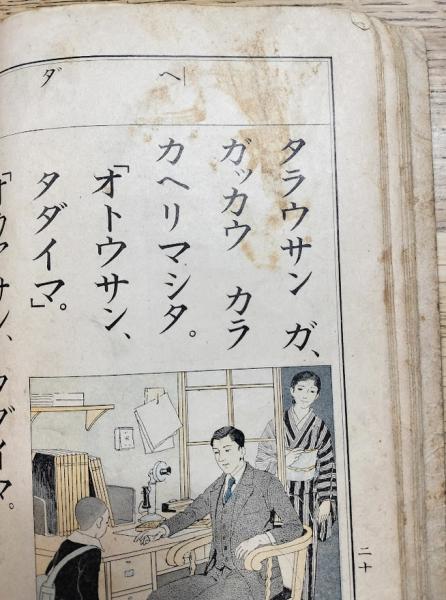 ヘ
ダ
タラウサン ガ、
ガッカウ カラ
カヘリマシタ。
「オトウサン、
タダイマ。」
サン、タダイマ。
二十